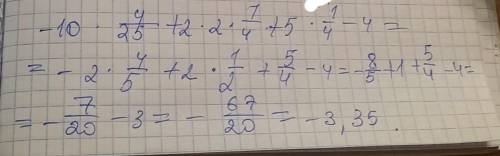 -10 · 4/25 + 2 · 2 · 1/4 + 5 · 1/4 - 4 =
= - 2 · 4/5 + 2 · 1/2 + 5/4 - 4 = -8/5 + 1 + 5/4 - 4 =
= - 7/20 - 3 = - 67/20 = -3,35.